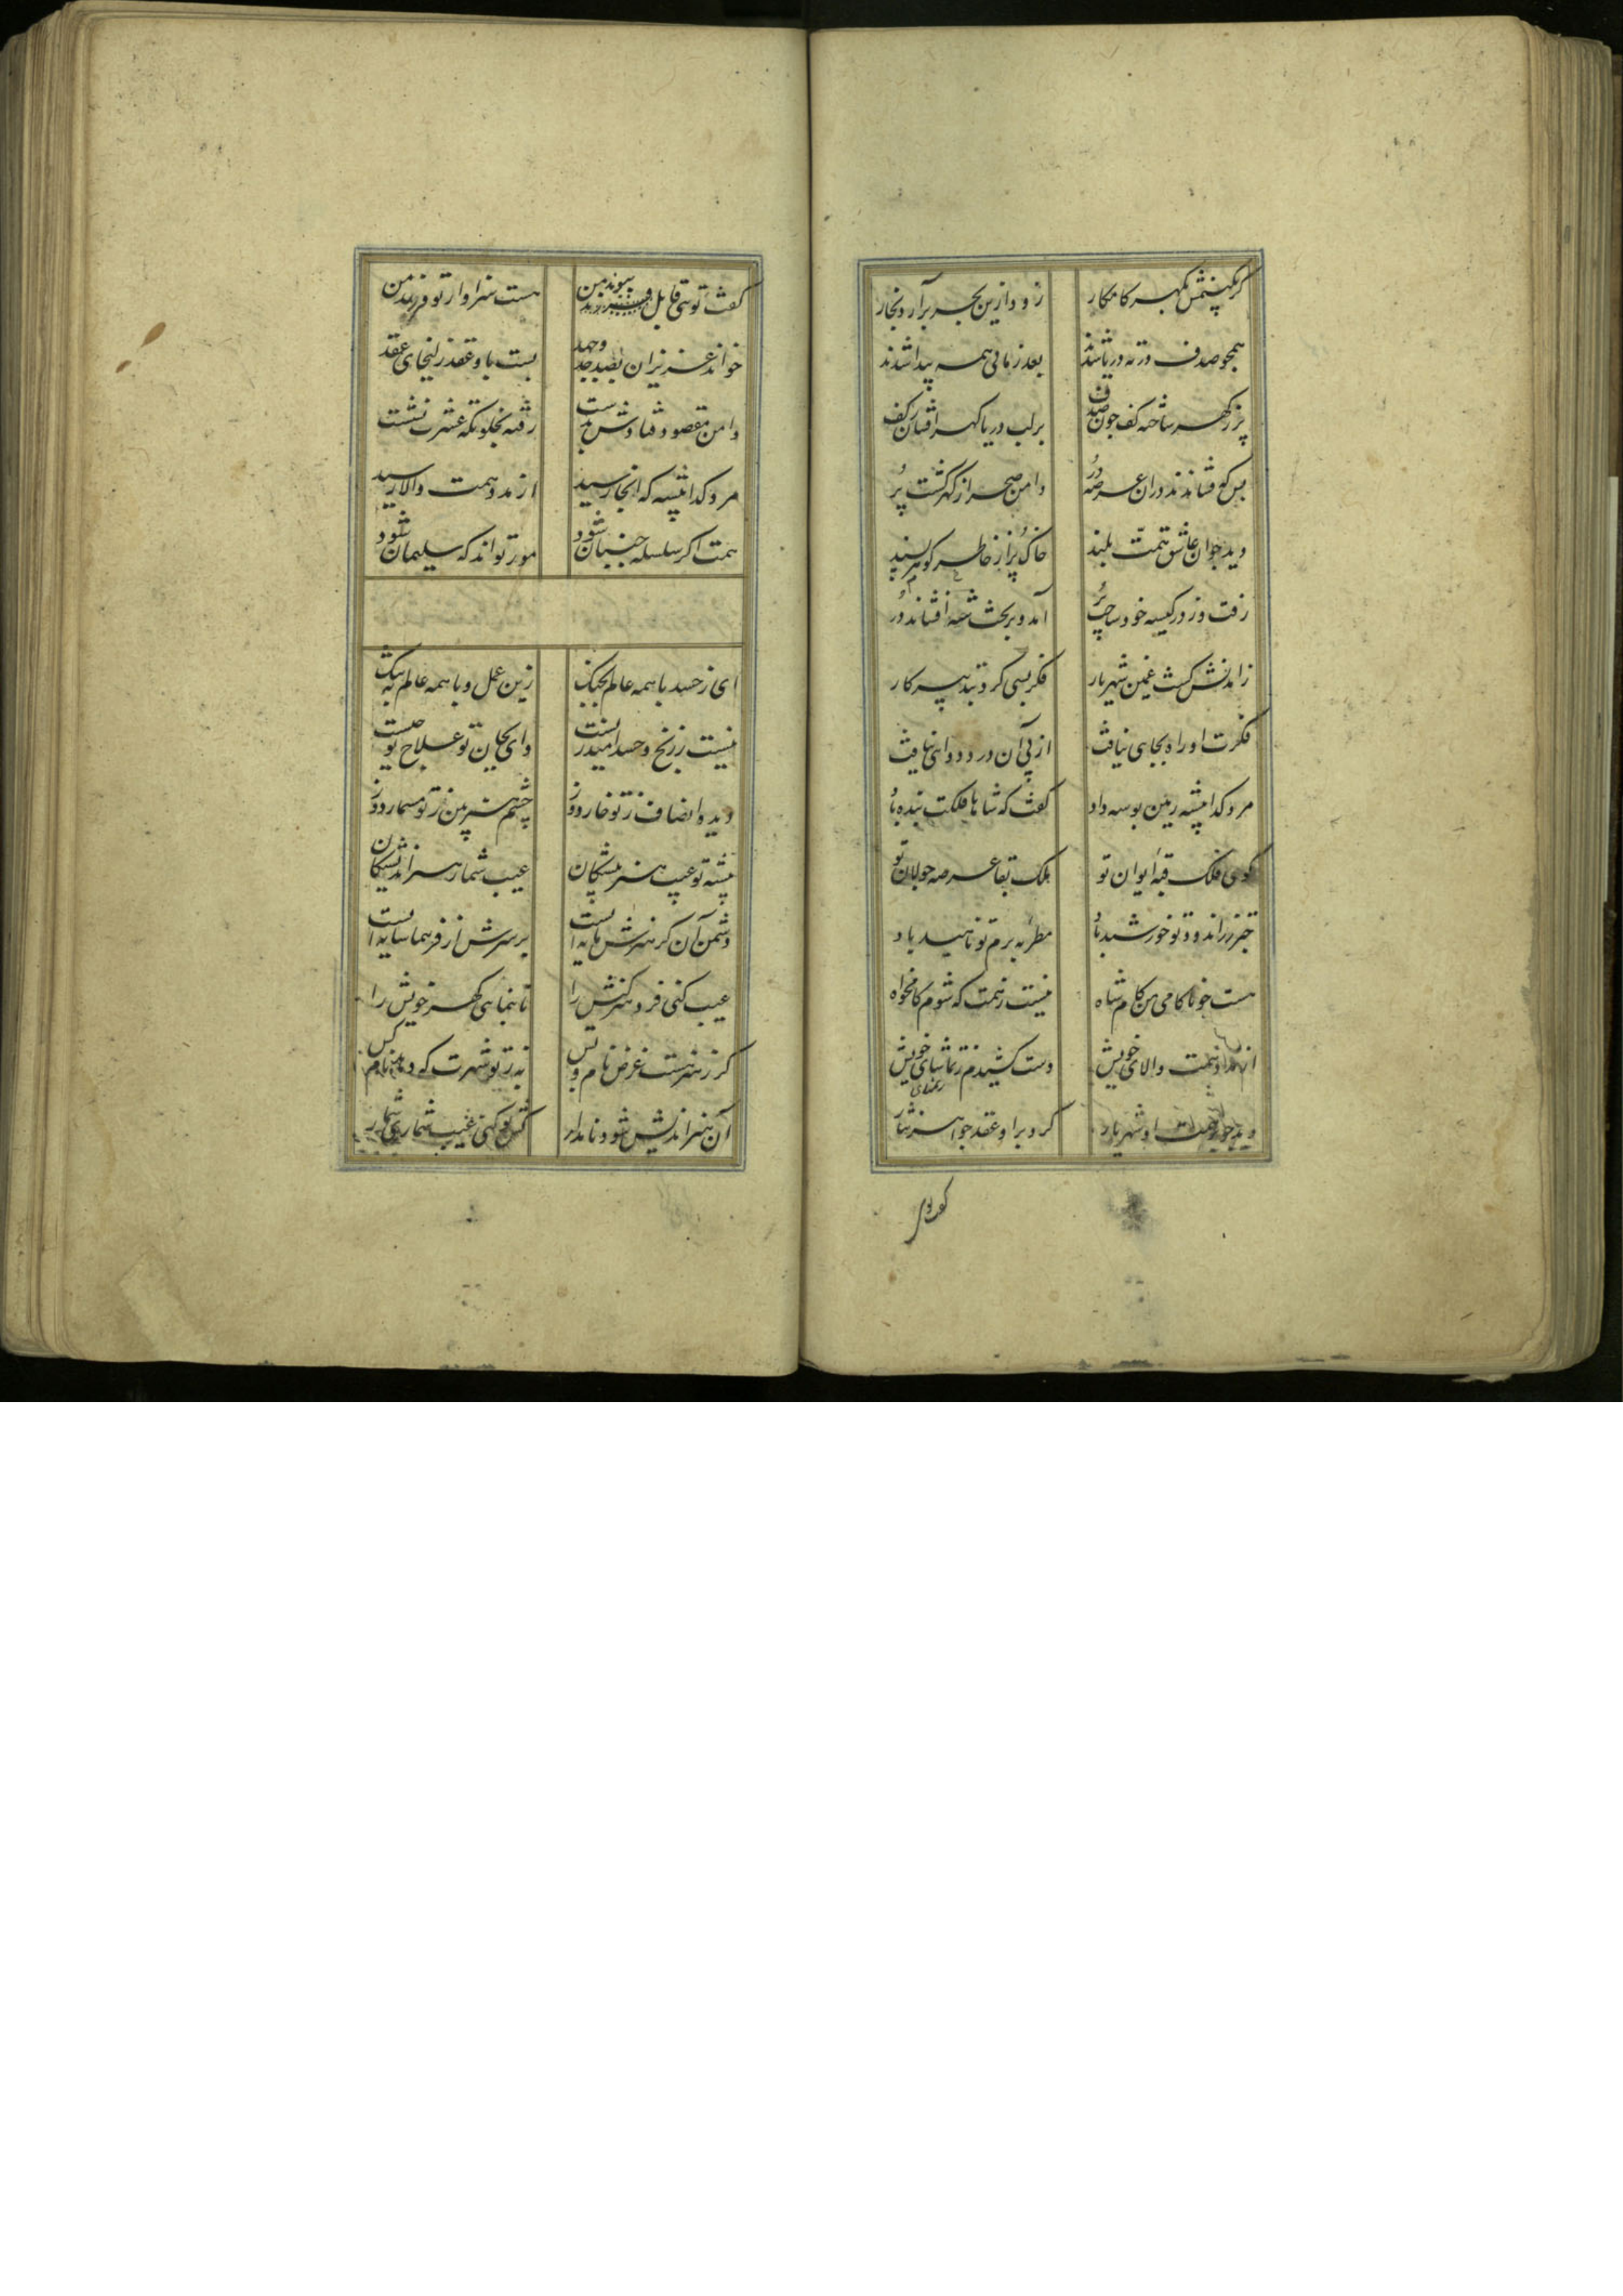 گر نکنیمش بگهر کامکار زود ازین بحر برآرد بخار
همچو صدف در ته دریا شدند بعد زمانی همه پیدا شدند
پر ز گهر ساخته کف چون صدف بر لب دریا گهر افشان ز کف
بس که فشاندند در آن عرصه در دامن صحرا ز گهر گشت پر
دید جوان عاشق همت بلند خاک پر از خاطر گوهر پسند
رفت وز در کیسه خود ساخت پر آمد و بر تخت شه افشاند در
زآمدنش گشت غمین شهریار فکر بسی کرد بتدبیر کار
فکرت او راه بجایی نیافت از پی آن درد دوایی نیافت
مرد گدا پیشه زمین بوسه داد گفت که شاها فلکت بنده باد
گوی فلک قبه ایوان تو ملک بقا عرصه جولان تو
چتر زراندود تو خورشید باد مطربه بزم تو ناهید باد
هست چو ناکامی من کام شاه نیست ز همت که شوم کامخواه
از مدد همت والای خویش دست کشیدم ز تمنای خویش
دید چو آن همت او شهریار کرد بر او عقد جواهر نثار
گفت توی
گفت تویی قابل پیوند من هست سزاوار تو فرزند من
خواند عزیزان بصد جد و جهد بست باو عقد زلیخای عهد
دامن مقصود فتادش بدست رفته بخلوتگه عشرت نشست
مرد گدا پیشه که آنجا رسید از مدد همت والا رسید
همت اگر سلسله جنبان شود مور تواند که سلیمان شود
ای ز حسد با همه عالم بجنگ زین عمل و با همه عالم به ننگ
نیست ز رنج و حسد امید زیست وای بجان تو علاج تو چیست
دیده انصاف ز تو خار دوز چشم هنربین ز تو مسمار دوز
پیشه تو عیب هنرپیشگان عیب شمار هنراندیشگان
دشمن آن کز هنرش مایه‌ایست بر سرش از فر هما سایه‌ایست
عیب کنی فرد هنرکیش را تا بنمایی گهر خویش را
گر ز هنر هست غرض نام و بس به ز تو شهرت که دهد نام کس
آن هنراندیش شود نامدار کش تو کنی عیب شماری شمار